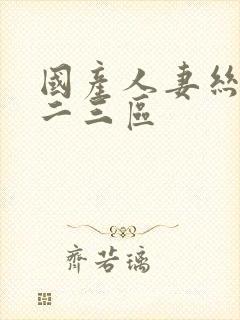 國產人妻絲
二三區
齊若璃